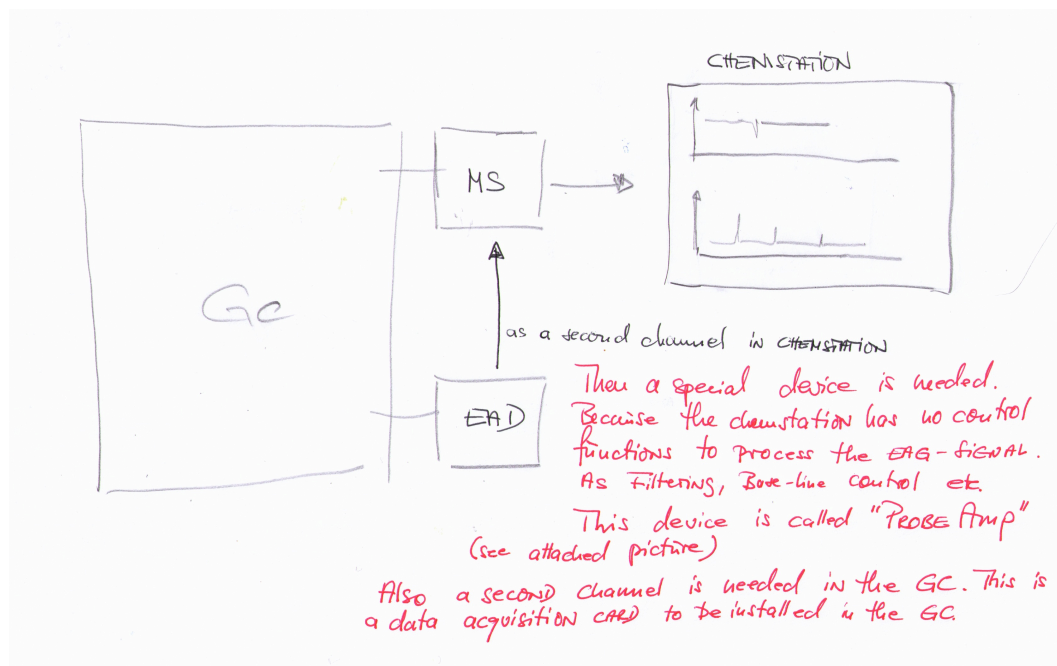 CHEMSTATION
MS
GC
as a second channel in CHEMSTATION
EAD
Then a special device is needed.
Because the chemstation has no control
functions to process the EAG-SIGNAL.
As Filtering, Base-line control etc.
This device is called "PROBE Amp"
(see attached picture)
Also a second channel is needed in the GC. This is
a data acquisition CARD to be installed in the GC.